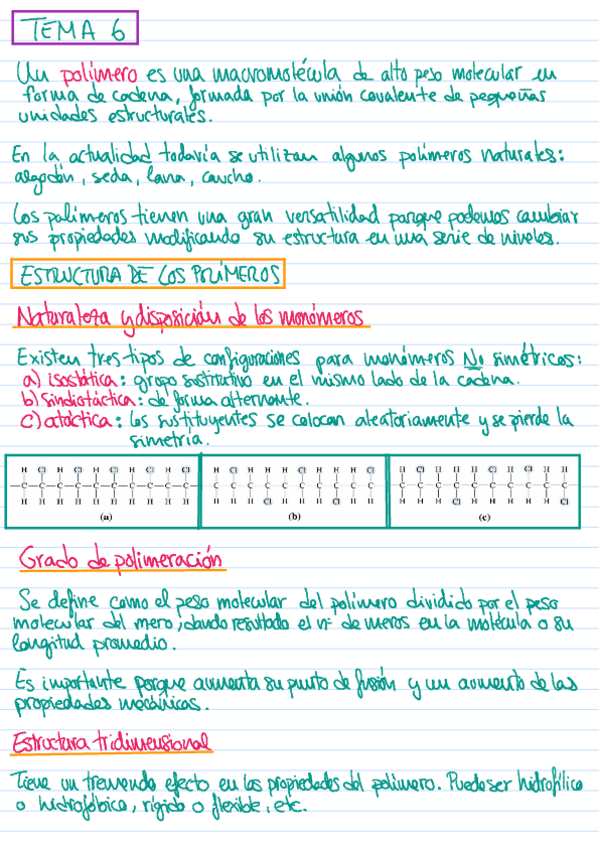 TEMA 6
Un polímero es una macromolécula de alto peso molecular en
forma de cadena, formada por la unión covalente de pequeñas
unidades estructurales.
En la actualidad todavía se utilizan algunos polímeros naturales:
algodón, seda, lana, caucho.
Los polímeros tienen una gran versatilidad porque podemos cambiar
sus propiedades modificando su estructura en una serie de niveles.
ESTRUCTURA DE LOS POLÍMEROS
Naturaleza y disposición de los monómeros
Existen tres tipos de configuraciones para monómeros No simétricos:
a) isostática: grupo sustitutivo en el mismo lado de la cadena.
b) sindiotáctica: de forma alternante.
c) atáctica: los sustituyentes se colocan aleatoriamente y se pierde la
simetría.
H Cl H Cl H Cl H Cl H Cl
—C—C—C—C—C—C—C—C—C—C—
H H H H H H H H H H
(a)
H Cl H H H Cl H H H Cl
C C C C C C C C C C
H H H Cl H H H Cl H H
(b)
H Cl H H H Cl H Cl H H
C C C C C C C C C C
H H H Cl H H H H H Cl
(c)
Grado de polimeración
Se define como el peso molecular del polímero dividido por el peso
molecular del mero, dando resultado el nº de meros en la molécula o su
longitud promedio.
Es importante porque aumenta su punto de fusión y un aumento de las
propiedades mecánicas.
Estructura tridimensional
Tiene un tremendo efecto en las propiedades del polímero. Puede ser hidrofílico
o hidrofóbico, rígido o flexible, etc.